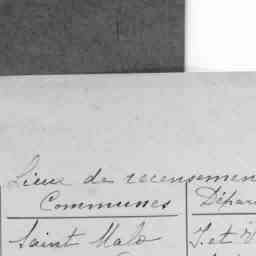 Lieu de recensemen
Communes Dépar
Saint Malo I. et V